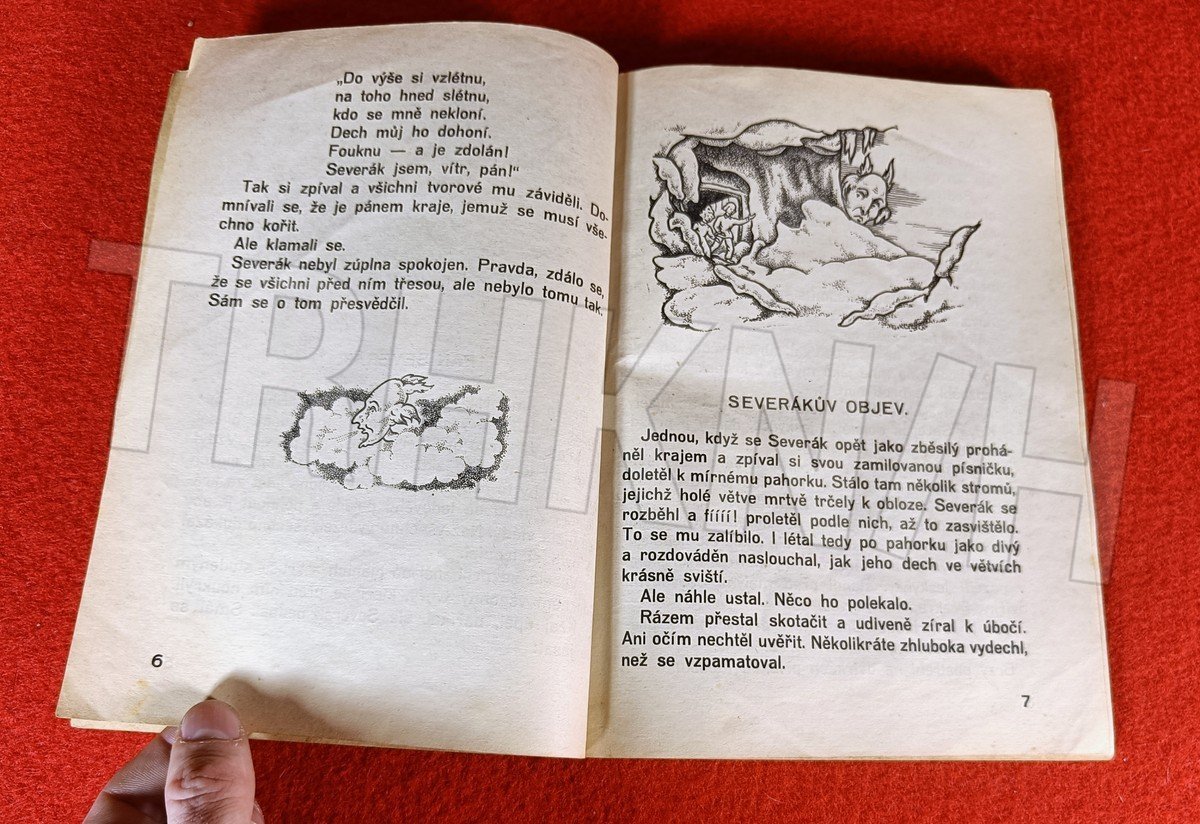 „Do výše si vzlétnu,
na toho hned slétnu,
kdo se mně nekloní.
Dech můj ho dohoní.
Fouknu — a je zdolán!
Severák jsem, vítr, pán!“
Tak si zpíval a všichni tvorové mu záviděli. Do-
mnívali se, že je pánem kraje, jemuž se musí vše-
chno kořit.
Ale klamali se.
Severák nebyl zúplna spokojen. Pravda, zdálo se,
že se všichni před ním třesou, ale nebylo tomu tak.
Sám se o tom přesvědčil.
6
SEVERÁKŮV OBJEV.
Jednou, když se Severák opět jako zběsilý prohá-
něl krajem a zpíval si svou zamilovanou písničku,
doletěl k mírnému pahorku. Stálo tam několik stromů,
jejichž holé větve mrtvě trčely k obloze. Severák se
rozběhl a fííííí! proletěl podle nich, až to zasvištělo.
To se mu zalíbilo. I létal tedy po pahorku jako divý
a rozdováděn naslouchal, jak jeho dech ve větvích
krásně sviští.
Ale náhle ustal. Něco ho polekalo.
Rázem přestal skotačit a udiveně zíral k úbočí.
Ani očím nechtěl uvěřit. Několikráte zhluboka vydechl,
než se vzpamatoval.
7
TRHKNIH